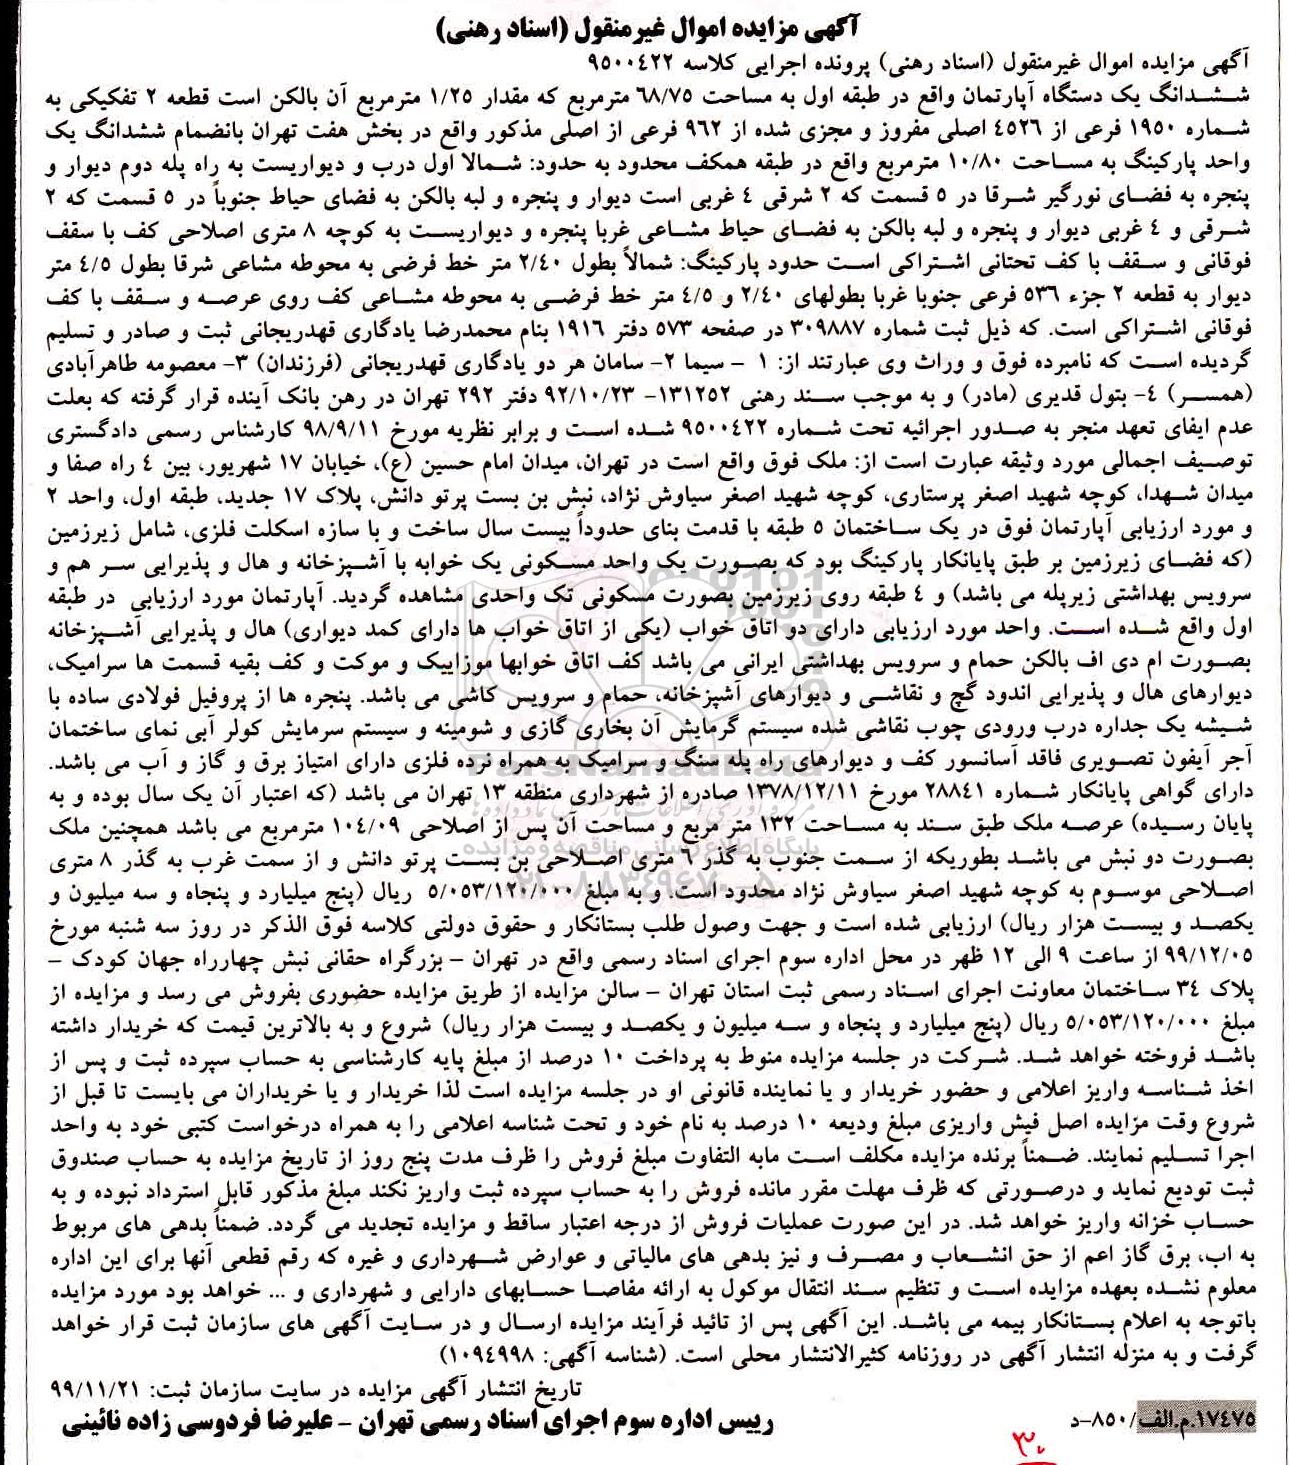 آگهی مزایده اموال غیرمنقول (اسناد رهنی)
آگهی مزایده اموال غیرمنقول (اسناد رهنی) پرونده اجرایی کلاسه ۹۵۰۰۴۲۲
ششدانگ یک دستگاه آپارتمان واقع در طبقه اول به مساحت ۶۸/۷۵ مترمربع که مقدار ۱/۲۵ مترمربع آن بالکن است قطعه ۲ تفکیکی به
شماره ۱۹۵۰ فرعی از ۴۵۲۶ اصلی مفروز و مجزی شده از ۹۶۲ فرعی از اصلی مذکور واقع در بخش هفت تهران بانضمام ششدانگ یک
واحد پارکینگ به مساحت ۱۰/۸۰ مترمربع واقع در طبقه همکف محدود به حدود: شمالا اول درب و دیواریست به راه پله دوم دیوار و
پنجره به فضای نورگیر شرقا در ۵ قسمت که ۲ شرقی ۴ غربی است دیوار و پنجره و لبه بالکن به فضای حیاط جنوباً در ۵ قسمت که ۲
شرقی و ۴ غربی دیوار و پنجره و لبه بالکن به فضای حیاط مشاعی غربا پنجره و دیواریست به کوچه ۸ متری اصلاحی کف با سقف
فوقانی و سقف با کف تحتانی اشتراکی است حدود پارکینگ: شمالاً بطول ۲/۴۰ متر خط فرضی به محوطه مشاعی شرقا بطول ۴/۵ متر
دیوار به قطعه ۲ جزء ۵۳۶ فرعی جنوبا غربا بطولهای ۲/۴۰ و ۴/۵ متر خط فرضی به محوطه مشاعی کف روی عرصه و سقف با کف
فوقانی اشتراکی است. که ذیل ثبت شماره ۳۰۹۸۸۷ در صفحه ۵۷۳ دفتر ۱۹۱۶ بنام محمدرضا یادگاری قهدریجانی ثبت و صادر و تسلیم
گردیده است که نامبرده فوق و وراث وی عبارتند از: ۱ – سیما ۲- سامان هر دو یادگاری قهدریجانی (فرزندان) ۳- معصومه طاهرآبادی
(همسر) ۴- بتول قدیری (مادر) و به موجب سند رهنی ۱۳۱۲۵۲- ۹۲/۱۰/۲۳ دفتر ۲۹۲ تهران در رهن بانک آینده قرار گرفته که بعلت
عدم ایفای تعهد منجر به صدور اجرائیه تحت شماره ۹۵۰۰۴۲۲ شده است و برابر نظریه مورخ ۹۸/۹/۱۱ کارشناس رسمی دادگستری
توصیف اجمالی مورد وثیقه عبارت است از: ملک فوق واقع است در تهران، میدان امام حسین (ع)، خیابان ۱۷ شهریور، بین ۴ راه صفا و
میدان شهدا، کوچه شهید اصغر پرستاری، کوچه شهید اصغر سیاوش نژاد، نبش بن بست پرتو دانش، پلاک ۱۷ جدید، طبقه اول، واحد ۲
و مورد ارزیابی آپارتمان فوق در یک ساختمان ۵ طبقه با قدمت بنای حدوداً بیست سال ساخت و با سازه اسکلت فلزی، شامل زیرزمین
(که فضای زیرزمین بر طبق پایانکار پارکینگ بود که بصورت یک واحد مسکونی یک خوابه با آشپزخانه و هال و پذیرایی سر هم و
سرویس بهداشتی زیرپله می باشد) و ۴ طبقه روی زیرزمین بصورت مسکونی تک واحدی مشاهده گردید. آپارتمان مورد ارزیابی در طبقه
اول واقع شده است. واحد مورد ارزیابی دارای دو اتاق خواب (یکی از اتاق خواب ها دارای کمد دیواری) هال و پذیرایی آشپزخانه
بصورت ام دی اف بالکن حمام و سرویس بهداشتی ایرانی می باشد کف اتاق خوابها موزاییک و موکت و کف بقیه قسمت ها سرامیک،
دیوارهای هال و پذیرایی اندود گچ و نقاشی و دیوارهای آشپزخانه، حمام و سرویس کاشی می باشد. پنجره ها از پروفیل فولادی ساده با
شیشه یک جداره درب ورودی چوب نقاشی شده سیستم گرمایش آن بخاری گازی و شومینه و سیستم سرمایش کولر آبی نمای ساختمان
آجر آیفون تصویری فاقد آسانسور کف و دیوارهای راه پله سنگ و سرامیک به همراه نرده فلزی دارای امتیاز برق و گاز و آب می باشد.
دارای گواهی پایانکار شماره ۲۸۸۴۱ مورخ ۱۳۷۸/۱۲/۱۱ صادره از شهرداری منطقه ۱۳ تهران می باشد (که اعتبار آن یک سال بوده و به
پایان رسیده) عرصه ملک طبق سند به مساحت ۱۳۲ متر مربع و مساحت آن پس از اصلاحی ۱۰۴/۰۹ مترمربع می باشد همچنین ملک
بصورت دو نبش می باشد بطوریکه از سمت جنوب به گذر ۶ متری اصلاحی بن بست پرتو دانش و از سمت غرب به گذر ۸ متری
اصلاحی موسوم به کوچه شهید اصغر سیاوش نژاد محدود است. و به مبلغ ۵/۰۵۳/۱۲۰/۰۰۰ ریال (پنج میلیارد و پنجاه و سه میلیون و
یکصد و بیست هزار ریال) ارزیابی شده است و جهت وصول طلب بستانکار و حقوق دولتی کلاسه فوق الذکر در روز سه شنبه مورخ
۹۹/۱۲/۰۵ از ساعت ۹ الی ۱۲ ظهر در محل اداره سوم اجرای اسناد رسمی واقع در تهران – بزرگراه حقانی نبش چهارراه جهان کودک –
پلاک ۳۴ ساختمان معاونت اجرای اسناد رسمی ثبت استان تهران – سالن مزایده از طریق مزایده حضوری بفروش می رسد و مزایده از
مبلغ ۵/۰۵۳/۱۲۰/۰۰۰ ریال (پنج میلیارد و پنجاه و سه میلیون و یکصد و بیست هزار ریال) شروع و به بالاترین قیمت که خریدار داشته
باشد فروخته خواهد شد. شرکت در جلسه مزایده منوط به پرداخت ۱۰ درصد از مبلغ پایه کارشناسی به حساب سپرده ثبت و پس از
اخذ شناسه واریز اعلامی و حضور خریدار و یا نماینده قانونی او در جلسه مزایده است لذا خریدار و یا خریداران می بایست تا قبل از
شروع وقت مزایده اصل فیش واریزی مبلغ ودیعه ۱۰ درصد به نام خود و تحت شناسه اعلامی را به همراه درخواست کتبی خود به واحد
اجرا تسلیم نمایند. ضمناً برنده مزایده مکلف است مابه التفاوت مبلغ فروش را ظرف مدت پنج روز از تاریخ مزایده به حساب صندوق
ثبت تودیع نماید و درصورتی که ظرف مهلت مقرر مانده فروش را به حساب سپرده ثبت واریز نکند مبلغ مذکور قابل استرداد نبوده و به
حساب خزانه واریز خواهد شد. در این صورت عملیات فروش از درجه اعتبار ساقط و مزایده تجدید می گردد. ضمناً بدهی های مربوط
به اب، برق گاز اعم از حق انشعاب و مصرف و نیز بدهی های مالیاتی و عوارض شهرداری و غیره که رقم قطعی آنها برای این اداره
معلوم نشده بعهده مزایده است و تنظیم سند انتقال موکول به ارائه مفاصا حسابهای دارایی و شهرداری و ... خواهد بود مورد مزایده
باتوجه به اعلام بستانکار بیمه می باشد. این آگهی پس از تائید فرآیند مزایده ارسال و در سایت آگهی های سازمان ثبت قرار خواهد
گرفت و به منزله انتشار آگهی در روزنامه کثیرالانتشار محلی است. (شناسه آگهی: ۱۰۹۴۹۹۸)
تاریخ انتشار آگهی مزایده در سایت سازمان ثبت: ۹۹/۱۱/۲۱
رییس اداره سوم اجرای اسناد رسمی تهران – علیرضا فردوسی زاده نائینی
۱۷۴۷۵م.الف/۸۵۰-د